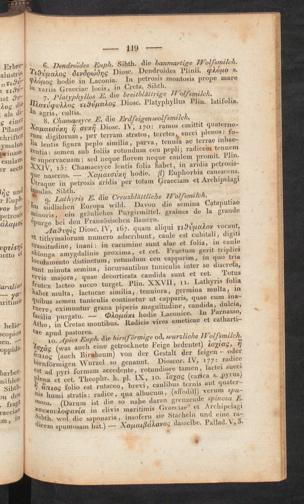 — 119 —
6. Dendroides Euph. Sibth. die baumartige Wolfsmilch.
Τιθύμαλος δενδρώδης Diosc. Dendroides Plinii. φλόμο s.
φλόμος hodie in Laconia. In petrosis montosis prope mare
in variis Graeciae locis, in Creta, Sibth.
7. Platyphyllos E. die breitblättrige Wolfsmilch.
Πλατύφυλλος τιθύμαλος Diosc. Platyphyllus Plin. latifolia.
In agris, cultis.
8. Chamaesyce E. die Erdfeigenwolfsmilch.
Χαμαισύκη ἢ συκῆ Diosc. IV, 170: ramos emittit quaterno-
rum digitorum, per terram stratos, teretes, succi plenos: fo-
lia lentis figura peplo similia, parva, tenuia ac terrae inhae-
rentia: semen sub foliis rotundum ceu pepli; radicem tenuem
ac supervacuam; sed neque florem neque caulem promit. Plin.
XXIV, 15: Chamaesyce lentis folia habet, in aridis petrosis-
que nascens. — Χαμαισύκη hodie. β) Euphorbia canescens.
Utraque in petrosis aridis per totam Graeciam et Archipelagi
insulas. Sibth.
9. Lathyris E. die Creuzblättliche Wolfsmilch.
Im südlichen Europa wild. Davon die semina Cataputiae
minoris, ein gräuliches Purgirmittel, graines de la grande
épurge bei den Französischen Bauern.
Λαθυρὶς Diosc. IV, 167. quam aliqui τιθύμαλον vocant,
ut tithymalorum numero adscribunt, caule est cubitali, digiti
crassitudine, inani: in cacumine sunt alae et folia, in caule
oblonga amygdalinis proxima, et cet. Fructum gerit triplici
loculamento distinctum, rotundum ceu capparim, in quo tria
sunt minuta semina, incurvantibus tuniculis inter se discreta,
ervis majora, quae decorticata candida sunt et cet. Totus
frutex lacteo succo turget. Plin. XXVII, 11. Lathyris folia
habet multa, lactucae similia, tenuiora, germina multa, in
quibus semen tuniculis continetur ut capparis, quae cum ina-
ruere, eximuntur grana piperis magnitudine, candida, dulcia,
facilia purgato. — Φλομάκι hodie Laconice. In Parnasso,
Atho, in Cretae montibus. Radicis vires emeticae et catharti-
cae apud pastores.
10. Apios Euph. die birnförmige od. wurzliche Wolfsmilch.
ἰσχὰς (was auch eine getrocknete Feige bedeutet) ἰσχὰς, ἢ
ἄπιος (auch Birnbaum) von der Gestalt der feigen- oder
birnförmigen Wurzel so genannt. Diosoor. IV, 177: radice
est ad pyri formam accedente, rotundiore tamen, lactei succi
plena et cet. Theophr. h. pl. IX, 10. ἰσχὰς (carica s. pyrus)
ἢ ἄπιος folio est rutaceo, brevi, caulibus ternis aut quater-
nis humi stratis: radice, qua albucum, (affodill) verum squa-
mosa. (Darum ist die so nahe daran grenzende spinosa E.
in clivis maritimis Graeciae et Archipelagi
Sibth. wol die saponaria, insofern sie Stacheln und eine ra-
dicem squamosam hat.) — Χαμαιβάλανος dasselbe. Pallad. V, 3.